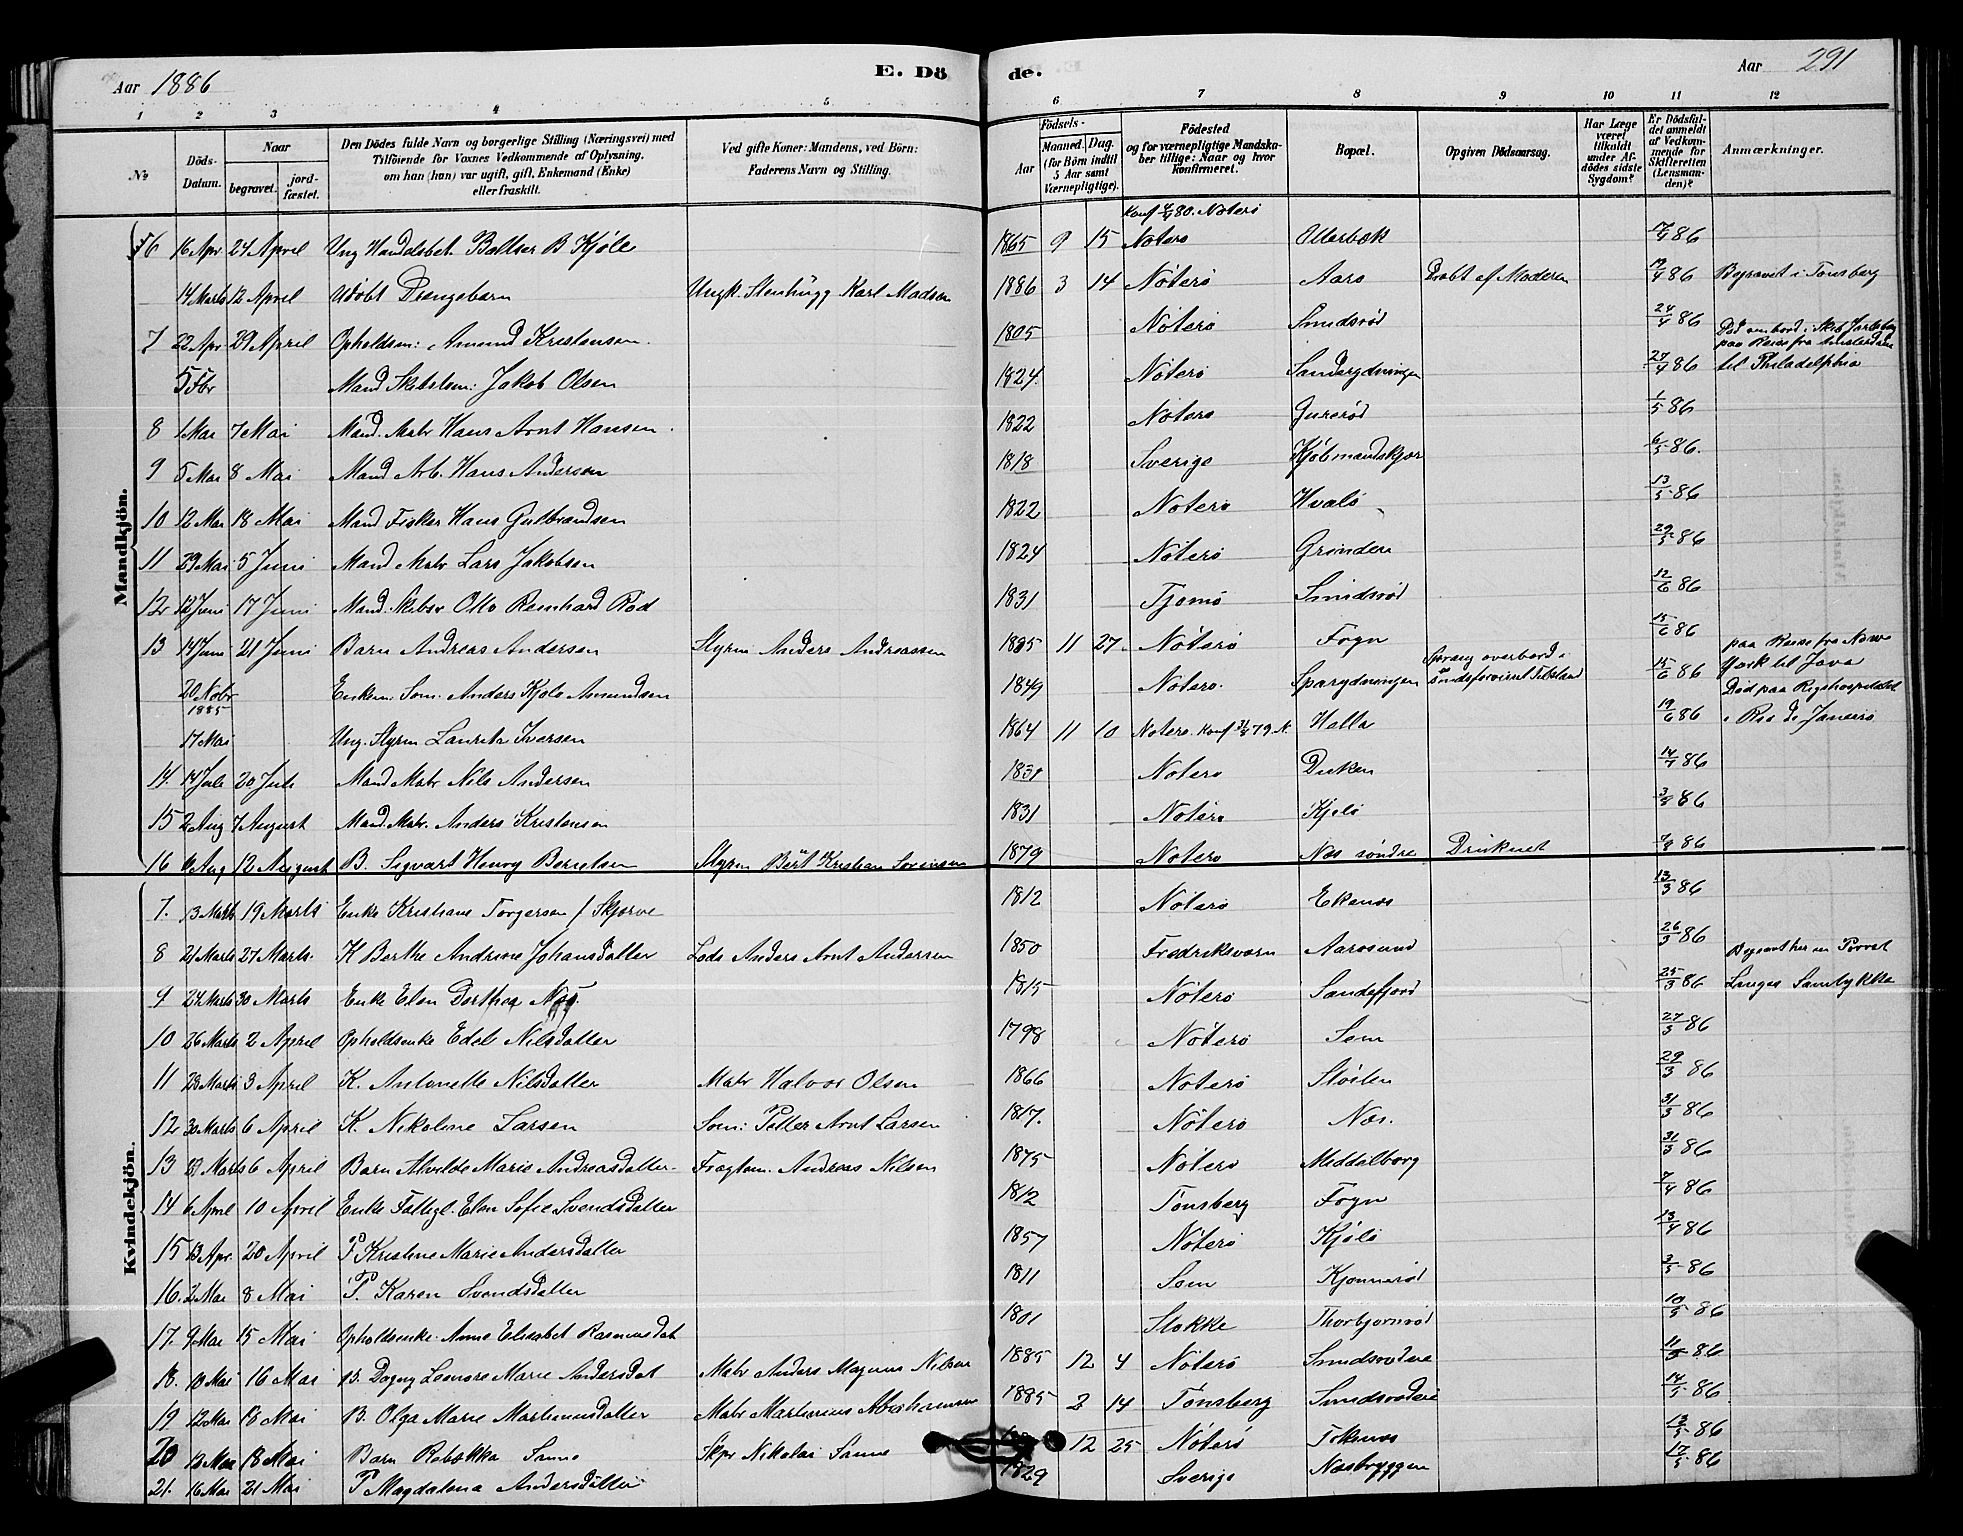 Aar 1886 E. Dö de. Aar 291
1 2 3 4 5 6 7 8 9 10 11 12
No Döds-Datum. Naar begravet. jordfæstet. Den Dödes fulde Navn og borgerlige Stilling (Næringsvei) med Tilföiende for Voxnes Vedkommende af Oplysning, om han (hun) var ugift, gift, Enkemand (Enke) eller fraskilt. Ved gifte Koner: Mandens, ved Börn: Faderens Navn og Stilling. Födsels- Aar Maaned. Dag. (for Börn indtil 5 Aar samt Værnepligtige). Födested og for værnepligtige Mandskaber tillige: Naar og hvor konfirmeret. Bopæl. Opgiven Dödsaarsag. Har Læge været tilkaldt under Afdödes sidste Sygdom? Er Dödsfaldet anmeldt af Vedkommende for Skifteretten (Lensmanden)? Anmærkninger.
Mandkjön.
6 16 Apr 24 April Ung Handelsbet. Baltser B Kjöle 1865 9 15 Nöterö 17/4 86
14 Marts 12 April Udöbt Drengebarn Ungk. Stenhugg Karl Madsen 1886 3 14 Nöterö Aarö Dræbt af Moderen 86 Begravet i Tönsberg
7 22 Apr 29 April Opholdsm: Amund Kristensen 1805 Nöterö Smidsröd 24/4 86
5 Fbr Mand Skibstöm: Jakob Olsen 1824 Nöterö 27/4 86 Död ombord i Skib Jarlsberg paa Reise fra Amsterdam til Philadelphia
8 1 Mai 7 Mai Mand. Matr Hans Arnt Hansen 1822 Nöterö 1/5 86
9 5 Mai 8 Mai Mand Arb. Hans Andersen 1818 Sverige Kjöbmandskjær 6/5 86.
10 12 Mai 18 Mai Mand Fisker Hans Gulbrandsen 1822 Nöterö Hvalö 13/5 86
11 29 Mai 5 Juni Mand Matr Lars Jakobsen 1824 Nöterö Grindere 29/5 86
12 12 Juni 17 Juni Mand. Skibsr Otto Reinhard Röd 1831 Tjömö Smidsröd 12/6 86
13 14 Juni 21 Juni Barn Andreas Andersen Styrm Anders Andreassen 11 27 Nöterö Fögn 15/6 86
20 Nobr 1885 Enkem. Söm. Anders Kjölö Amundsen 1849 Nöterö. Sprang overbord i sindsforvirret Tilstand 15/6 86 paa Reise fra New York til Java
17 Mai Ung. Styrm Lauritz Iversen 1864 11 10 Nöterö. Konf 79 N. Halla 19/6 86 Död paa Rigshospitalet i Rio de Janeiro
14 14 Juli 20 Juli Mand Matr Nils Andersen 1831 Nöterö Duken 14/7 86
15 2 Aug 7 August Mand Matr. Anders Kristensen 1831 Nöterö Kjölö 3/8 86
16 6 Aug 12 August B. Sigvart Henry Berntsen Styrm Bert Kristian Sörensen 1879 Nöterö Næs söndre Druknet 7/8 86
Kvindekjön.
7. 13 Marts 19 Marts Enke Kristiane Torgersen / Skjerve 1812 Nöterö Ekenæs 13/3 86
8 21 Marts 27 Marts. K Berthe Andrine Johansdatter Lods Anders Arnt Andersen 1850 Fredriksværn Aarösund 26/3 86
9 24 Marts 30 Marts Enke Elen Dorthea Næs 1815 Nöterö Sandefjord 25/3 86 Begravet her m Provst Langes Samtykke
10 26 Marts 2 April Opholdsenke Edel Nilsdatter 1798 Nöterö Sem 27/3 86
11 28 Marts 3 April K. Antonette Nilsdatter Matr Halvor Olsen 1866 Nöterö Stöiten 29/3 86
12 30 Marts 6 April K. Nikoline Larsen Söm: Petter Arnt Larsen 1817. Nöterö Næs. 31/3 86
13 29 Marts 6 April Barn Alvilde Marie Andreasdatter Fragtem. Andreas Nilsen 1875 Nöterö Meddelborg 31/3 86
14 6 April 10 April Enke Fattigl. Elen Sofie Svendsdatter 1812 Tönsberg Fögn 7/4 86
15 13 Apr. 20 April P Kristine Marie Andersdatter 1857 Nöterö Kjölö 13/4 86
16. 2 Mai 8 Mai P. Karen Svendsdatter 1811 Sem Kjönneröd 3/5 86
17. 9 Mai 15 Mai Opholdsenke Anne Elisabet Rasmusdat 1801 Stokke Thorbjörnröd 10/5 86
18. 10 Mai 16 Mai B. Dagny Leonore Marie Andersdat Matr Anders Magnus Nilsen 1885 12 4 Nöterö 11/5 86
19 12 Mai 18 Mai B. Olga Marie Martinusdatter Matr Martinius Abrahamsen 1885 2 14 Tönsberg 14/5 86
20 13 Mai 18 Mai Barn Rebekka Sanne Skpr Nikolai Sanne 12 25 Nöterö 86
21. 16 Mai 21 Mai P Magdalena Andersdatter 1829 Sverige Næsbryggen 17/5 86